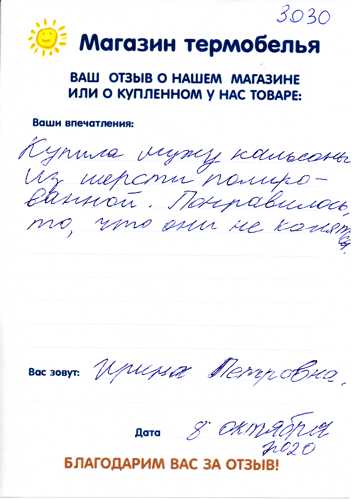 3030
Магазин термобелья
ВАШ ОТЗЫВ О НАШЕМ МАГАЗИНЕ
ИЛИ О КУПЛЕННОМ У НАС ТОВАРЕ:
Ваши впечатления:
Купила мужу кальсоны
из шерсти полиро-
ванной. Понравилось,
то, что они не катят
ся.
Вас зовут: Ирина Петровна.
Дата 8 октября
2020
БЛАГОДАРИМ ВАС ЗА ОТЗЫВ!